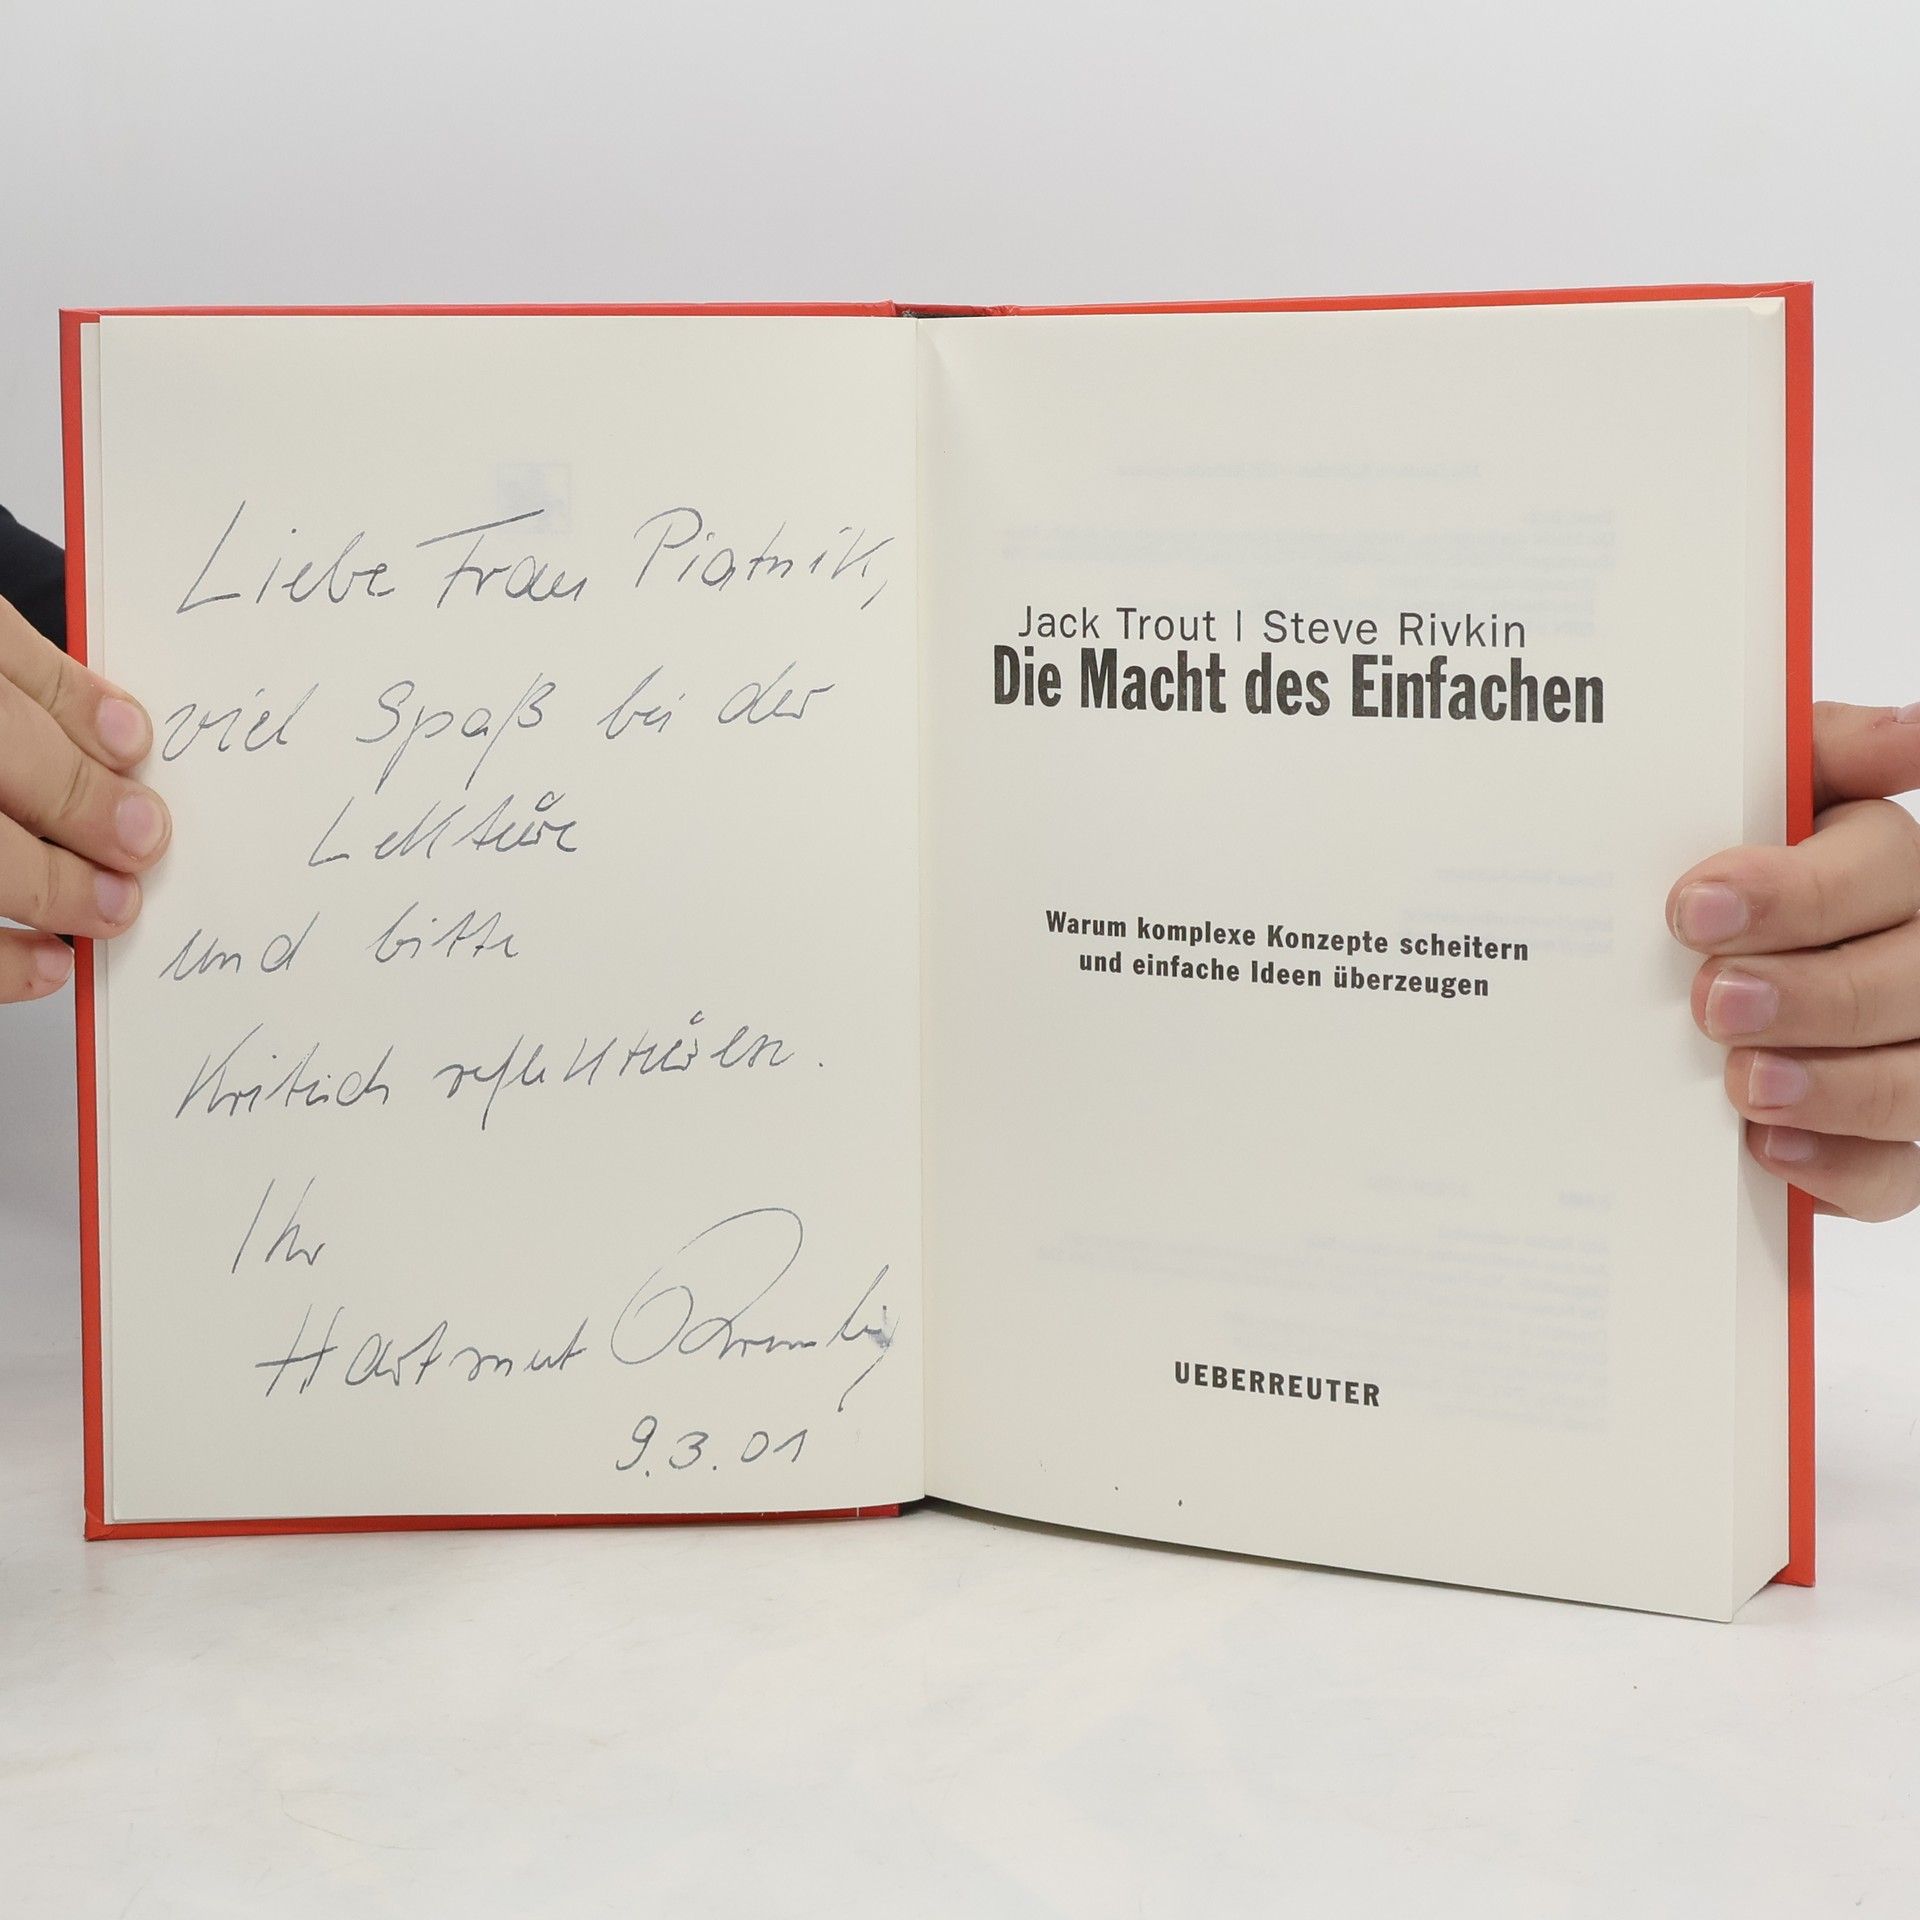 Liebe Frau Piatnik,
viel Spaß bei der
Lektüre
und bitte
Kritisch reflektieren.
Ihr
Hartmut
9.3.01
Jack Trout | Steve Rivkin
Die Macht des Einfachen
Warum komplexe Konzepte scheitern
und einfache Ideen überzeugen
UEBERREUTER